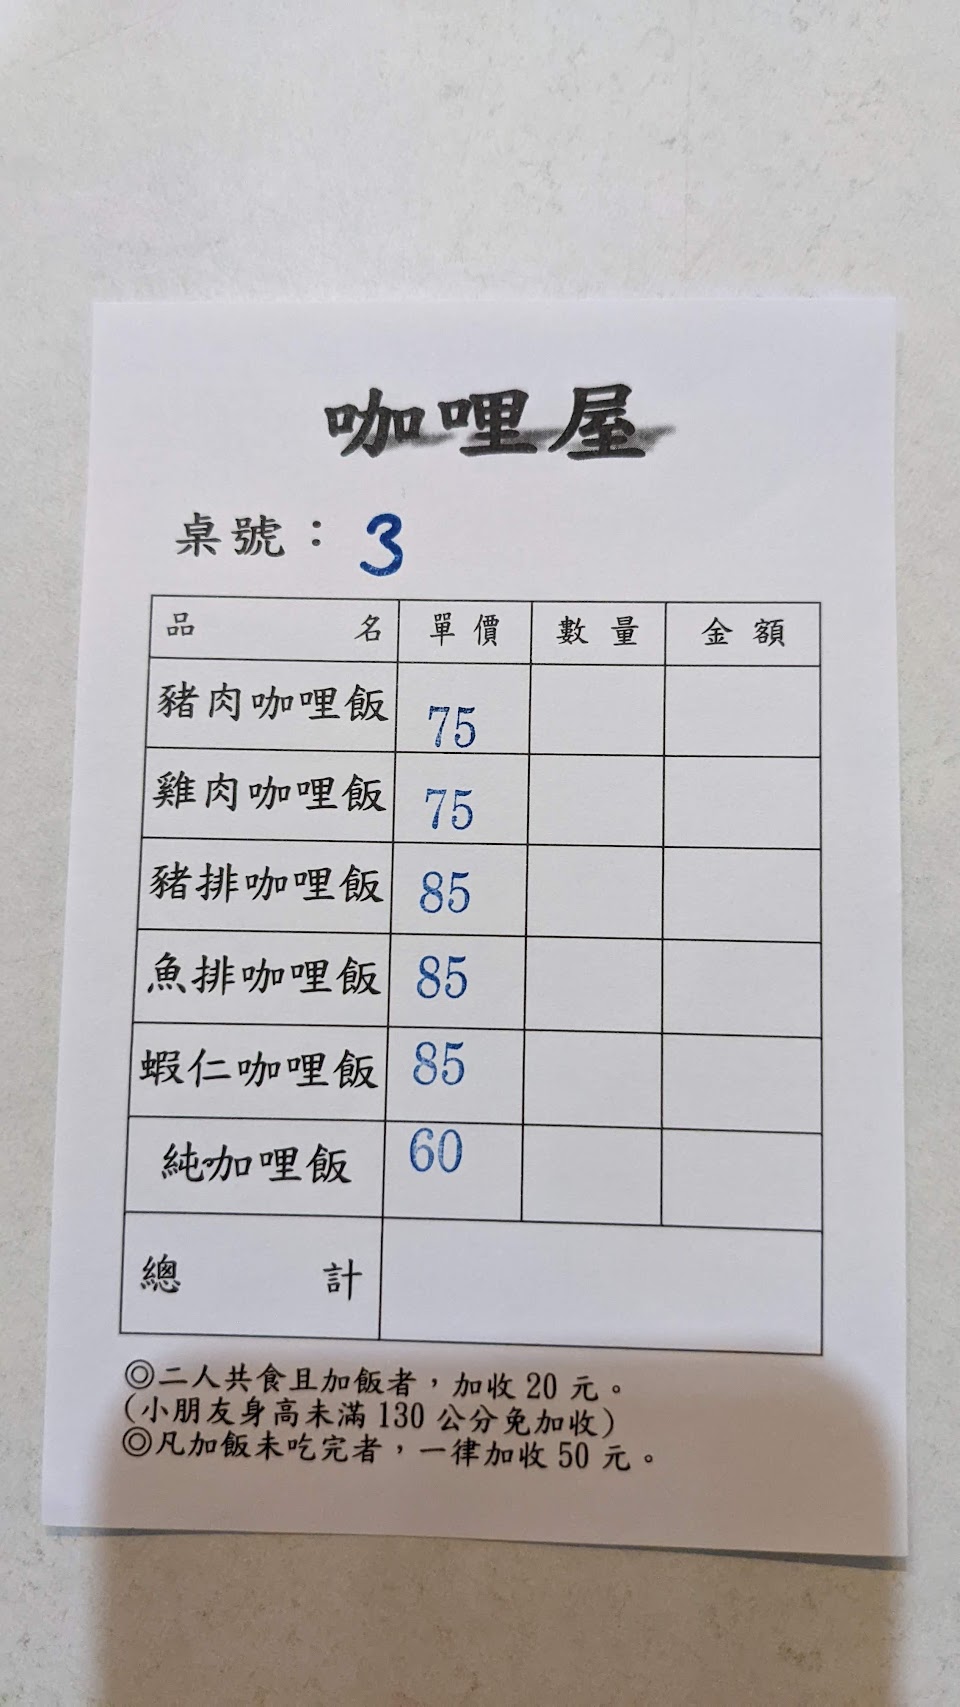 咖哩屋
桌號：3
品名 單價 數量 金額
豬肉咖哩飯 75
雞肉咖哩飯 75
豬排咖哩飯 85
魚排咖哩飯 85
蝦仁咖哩飯 85
純咖哩飯 60
總計
◎二人共食且加飯者，加收20元。
(小朋友身高未滿130公分免加收)
◎凡加飯未吃完者，一律加收50元。